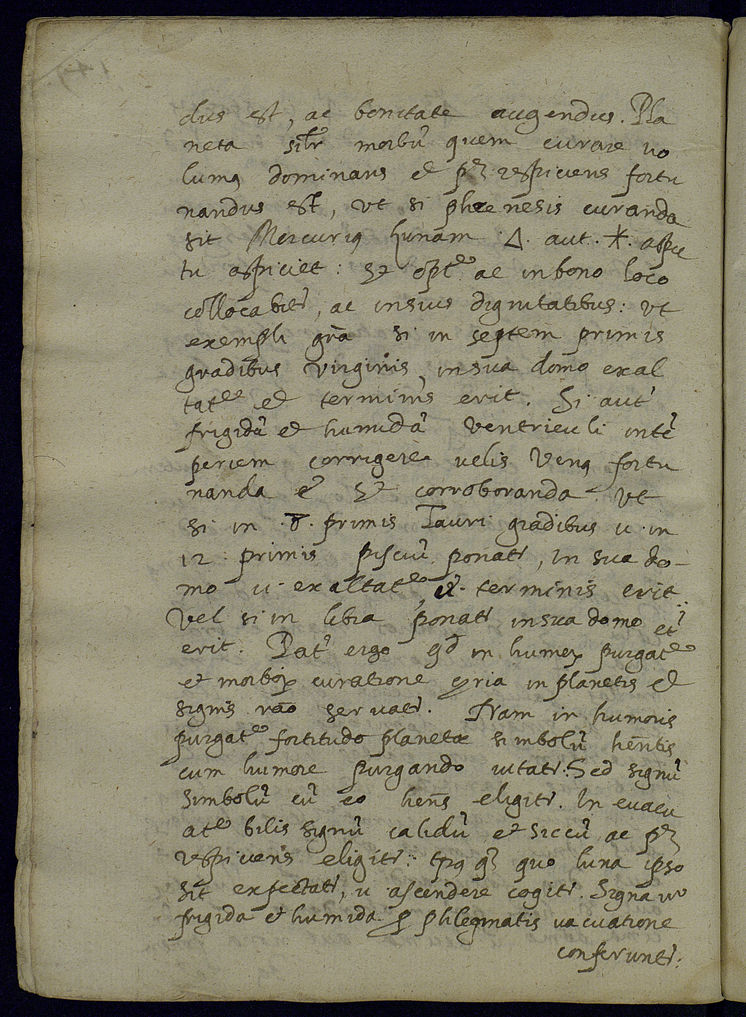 dus est, ac bonitate augendus. Pla
neta siĩr morbũ quem curare uo
lumꝰ dominans et respiciens fortu
nandus est, vt si phrenesis curanda
sit Mercuriꝰ Lunam .△. aut .✶. aspec
tu aspiciet: ac in bono loco
collocabitr̃, ac in suis dignitatibus: vt
exempli grã si in septem primis
gradibus virginis, in sua domo exal
tatᵉ et terminis erit. Si aut̃
frigidã et humidã ventriculi intẽ
periem corrigere uelis Venꝰ fortu
nanda et corroboranda. vt
si in .8. primis Tauri gradibus u in
12 primis pisciũ ponatr̃, in sua do-
mo u exaltatᵉ terminis erit
vel si in libra ponatr̃ in sua domo et̃
erit. Pat̃ ergo qd̃ in humoꝝ purgatᵉ
et morboꝝ curatione ꝯria in planetis et
signis rão servatr̃. Nam in humoris
purgatᵉ fortitudo planetæ simbolũ hẽntis
cum humore purgando uitatr̃: Sed signũ
simbolũ cũ eo hẽns eligitr̃. In euacu
atᵉ bilis signũ calidũ et siccũ ac
respiciens eligitr̃: quo luna ipso
sit exsectatr̃, u ascendere cogitr̃. Signa uº
frigida et humida ꝓ phlegmatis vacuatione
conferuntr̃.